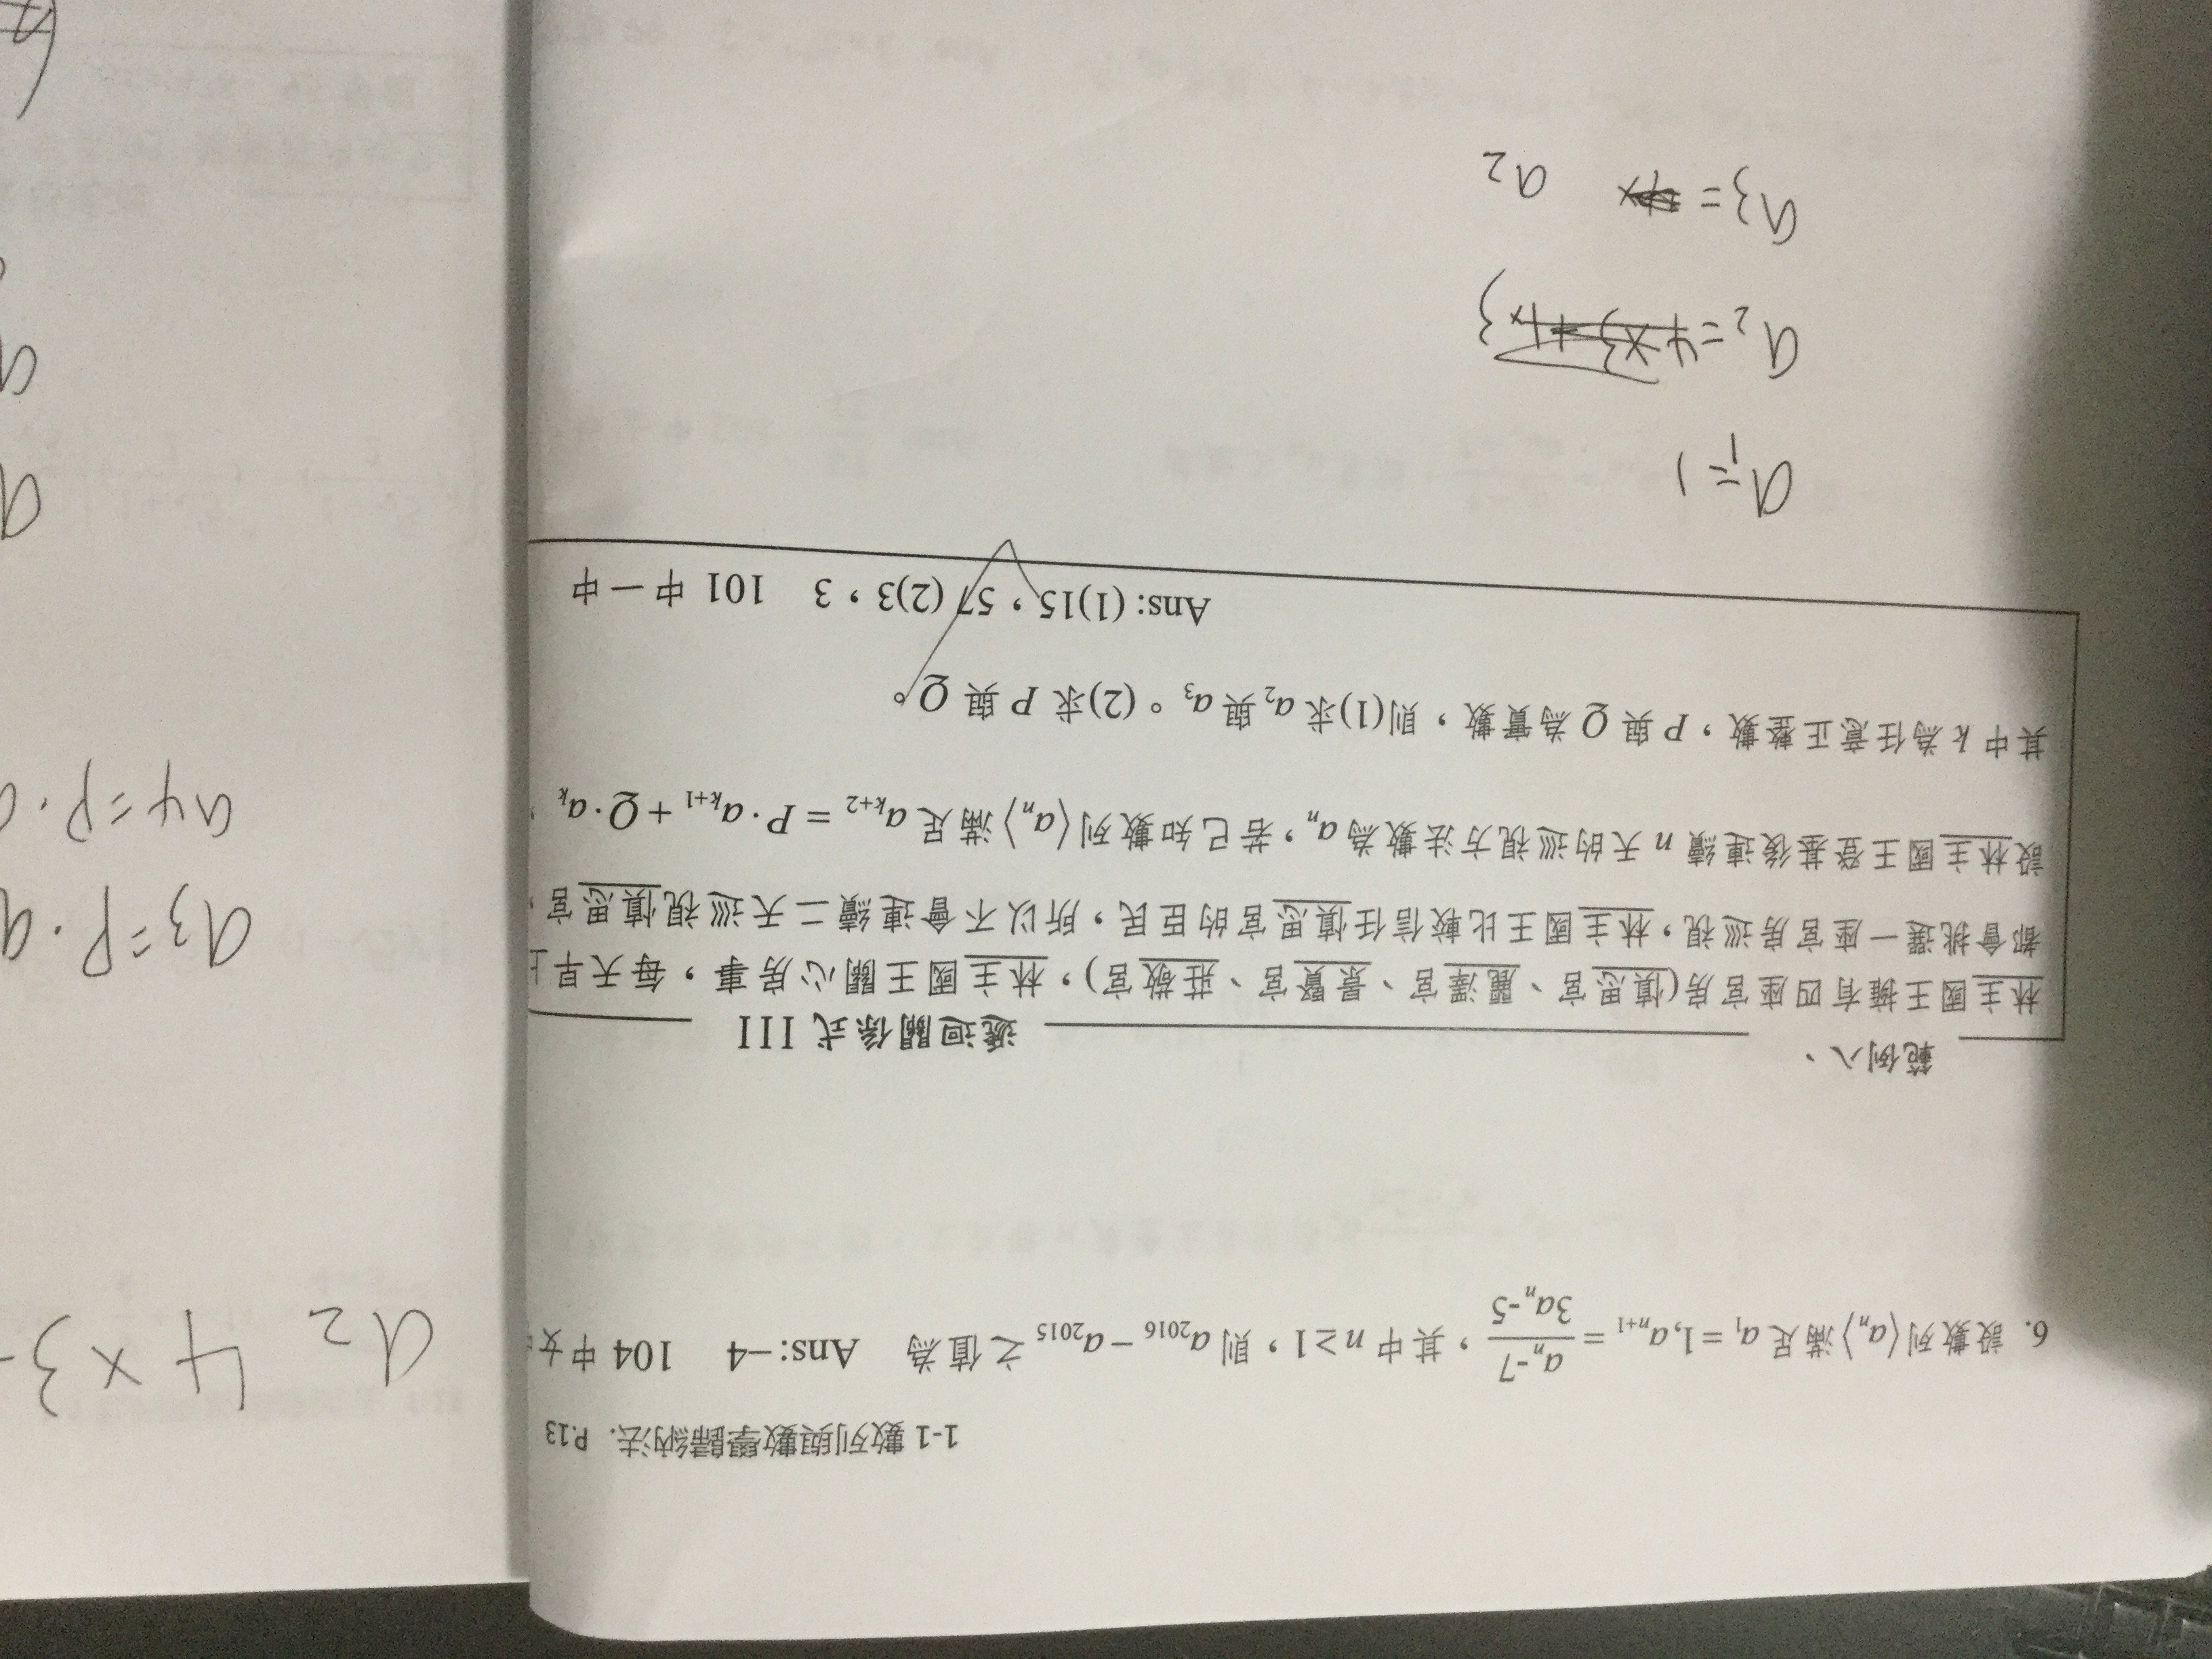 1-1 數列與數學歸納法. P.13
6. 設數列⟨aₙ⟩滿足 a₁ = 1, aₙ₊₁ = (aₙ-7)/(3aₙ-5)，其中 n ≥ 1，則 a₂₀₁₆ − a₂₀₁₅ 之值為 Ans: −4 104 中女
範例八、 遞迴關係式 III
林主國王擁有四座宮房(慎思宮、麗澤宮、景賢宮、莊敬宮)，林主國王關心房事，每天早上
都會挑選一座宮房巡視，林主國王比較信任慎思宮的臣民，所以不會連續二天巡視慎思宮，
設林主國王登基後連續 n 天的巡視方法數為 aₙ，若已知數列⟨aₙ⟩滿足 aₖ₊₂ = P·aₖ₊₁ + Q·aₖ，
其中 k 為任意正整數，P 與 Q 為實數，則(1)求 a₂ 與 a₃。(2)求 P 與 Q。
Ans: (1)15，57 (2)3，3 101 中一中
a₁=1
a₂=4×3+1×3
a₃= a₂
a₂ 4×3
a₃=P·a
a₄=P·
a
a